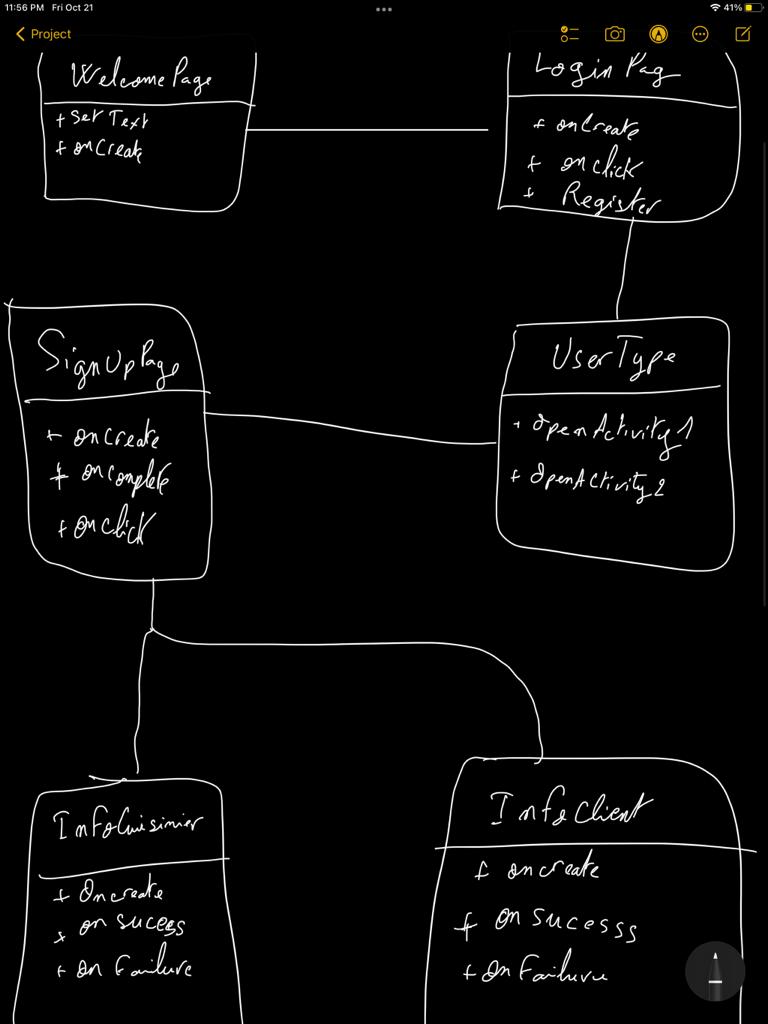 11:56 PM Fri Oct 21
41%
Project
WelcomePage
+ Set Text
+ onCreate
Login Pag
+ onCreate
+ onclick
+ Register
SignUpPage
+ oncreate
+ oncomplete
+ onclick
UserType
+ OpenActivity1
+ OpenActivity2
InfoCuisinier
+ Oncreate
+ on sucess
+ on Failure
InfoClient
+ oncreate
+ on sucesss
+ on Failure